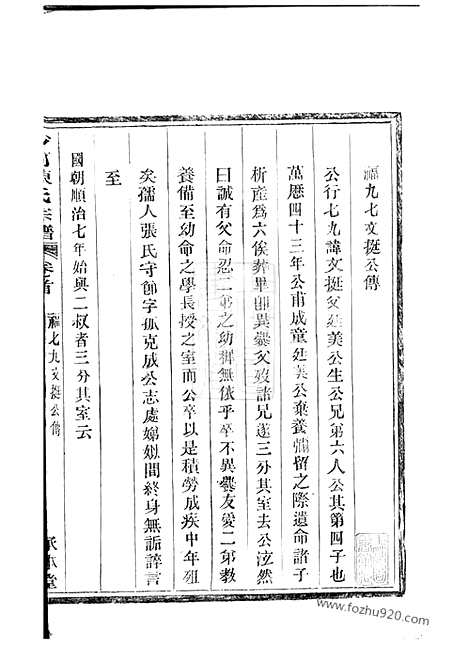 福九七文挺公傳
公行七九諱文挺父廷美公生公兄第六人公其第四子也
萬厯四十三年公甫成童廷美公棄養彌留之際遺命諸子
析產爲六俟葬畢卽異爨父歿諸兄遂三分其室去公泣然
曰誠有父命忍二第之幼稺無依乎卒不異爨友愛二第教
養備至幼命之學長授之室而公卒以是積勞成疾中年殂
矣孺人張氏守節字孤克成公志處娣姒間終身無詬誶言
至
國朝順治七年始與二叔者三分其室云
陳氏宗譜
卷首
福七九文挺公傳
本堂
www.fozhu920.com